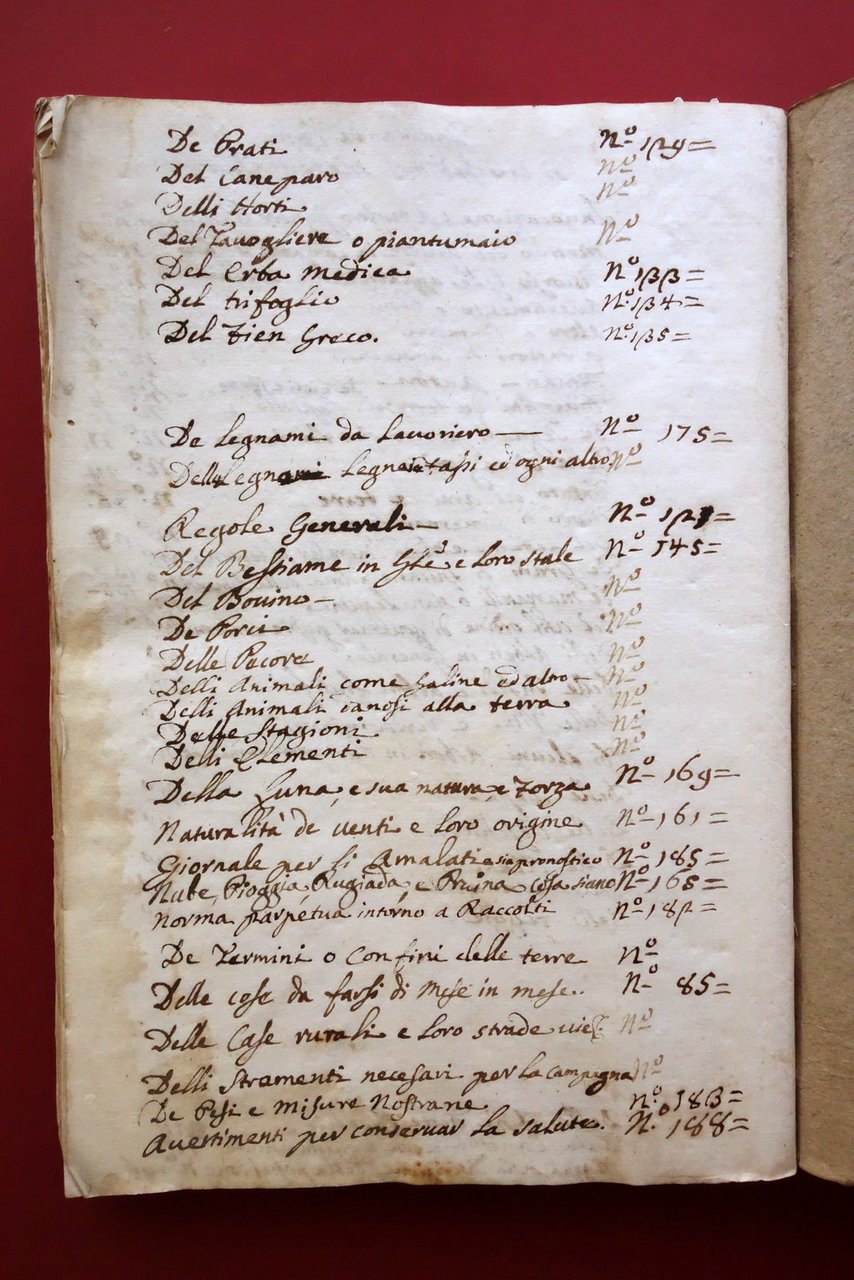 De Prati nº 129=
Del Caneparo nº
Delli Horti nº
Del Tavogliere o piantumaio nº
Del Erba medica nº 133=
Del trifoglio nº 134=
Del Fien Greco. nº 135=
De legnami da lavoriero — nº 175=
Delle legne tassi ed ogni altro nº
Regole Generali — nº 127=
Del Bestiame in Gle e loro stale nº 145=
Del Bovino — nº
De Porci nº
Delle Pecore nº
Delli Animali come Galine ed altro — nº
Delli Animali danosi alla terra nº
Delle Stagioni nº
Delli Elementi nº
Della Luna, e sua natura e Forza nº 169=
Naturalità de venti e loro origine nº 161=
Giornale per li Amalati e sia pronostico nº 185=
Nube, Pioggia, Rugiada, e Bruina cosa siano nº 165=
Norma parpetua intorno a Raccolti nº 182=
De Termini o Confini delle terre nº
Delle cose da farsi di mese in mese. nº 85=
Delle Case rurali e loro strade nº
Delli Stramenti necesari per la campagna nº
De Pesi e misure Nostrane nº 183=
Avertimenti per conservar la salute. n.º 188=